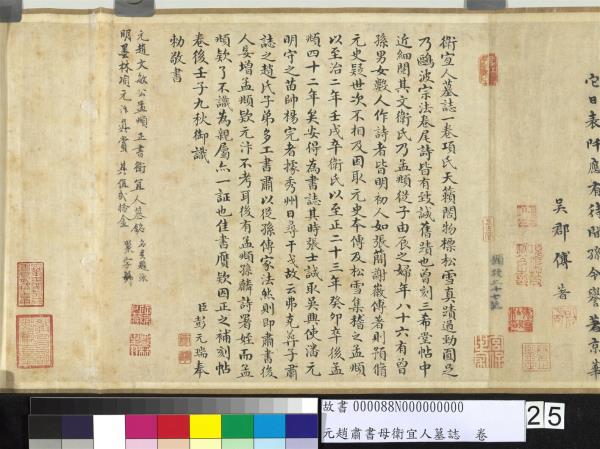 它日表阡應有待賸孫令譽著京華
吳郡傅著
衛宜人墓誌一卷項氏天籟閣物標松雪真蹟適動圓足
乃鷗波宗法卷尾詩皆有致誠舊蹟也曾刻三希堂帖中
近細閱其文衛氏乃孟頫從子由辰之婦年八十六有曾
孫男女數人作詩者皆明初人如張簡謝徽傅著則預脩
元史疑世次不相及因取元史本傳及松雪集稽之孟頫
以至治二年壬戌卒衛氏以至正二十三年癸卯卒後孟
頫四十二年矣安得為書誌其時張士誠取吳興使潘元
明守之苗帥楊完者據秀州日尋干戈故云弗克葬子肅
誌之趙氏子弟多工書肅以從孫傳家法然則即肅書後
人妄增孟頫款元汴不考耳後有孟頫孫麟詩署姪而孟
頫款了不識為親屬亦一証也佳書贗款因正之補刻帖
卷後壬子九秋御識
臣彭元瑞奉
勅敬書
元趙文敏公孟頫正書衛宜人墓銘
明墨林項元汴真賞
其值貳拾金
故書 000088N000000000
元趙肅書母衛宜人墓誌 卷
25